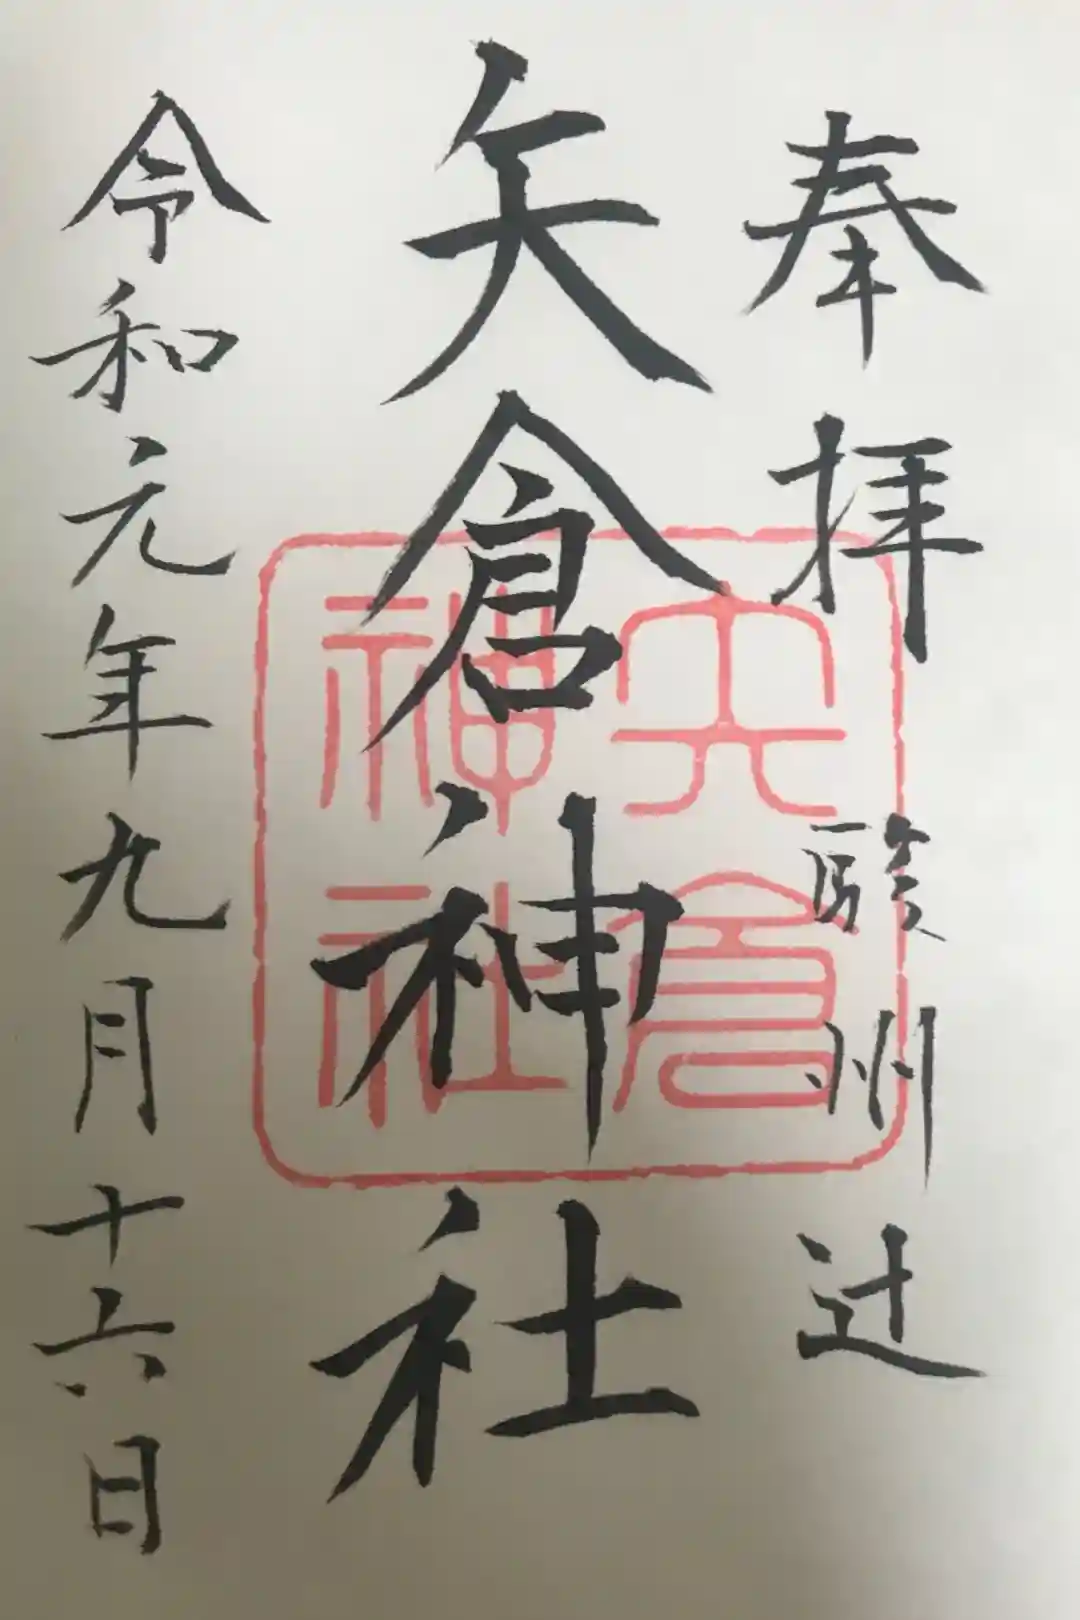 奉拝 駿州辻
矢倉神社
令和元年九月十六日
矢倉
神社